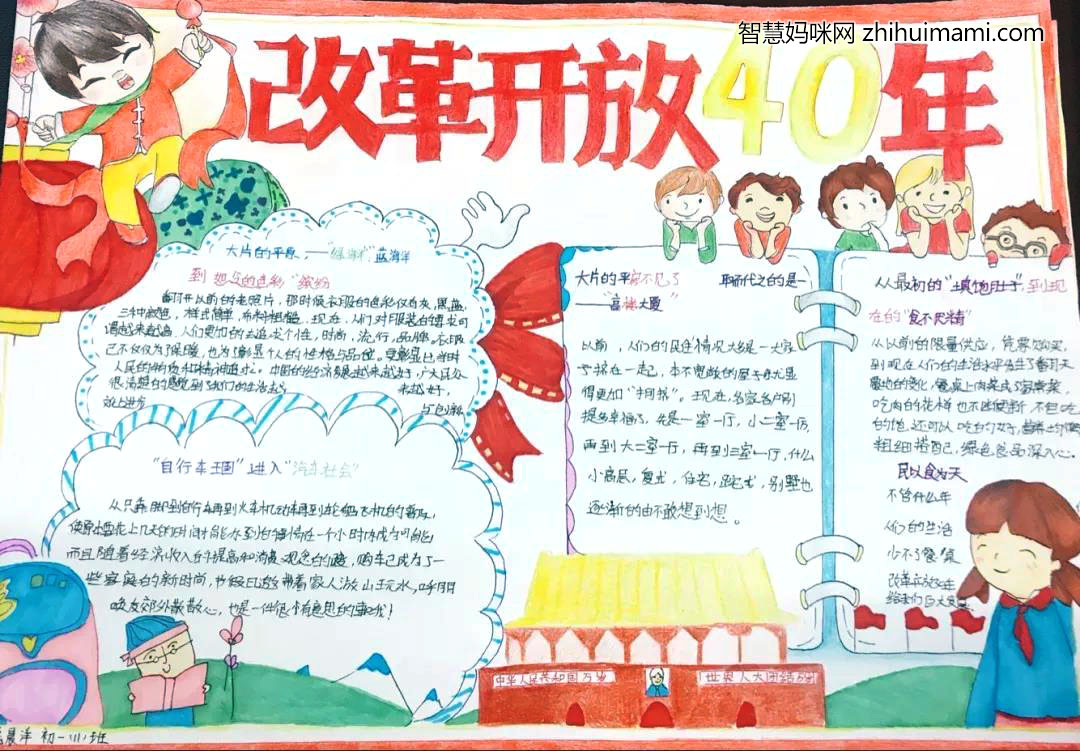 智慧妈咪网 zhihuimami.com
改革开放40年
大片的平息,——"绿海洋",蓝海洋
到 想点的色彩 "缤纷
翻开以前的老照片,那时候衣服的色彩仅有灰,黑,蓝,
三种颜色,样式简单,布料粗糙。现在,人们对服装的要求可
谓越来越高,人们更加的去追求个性,时尚,流行,品牌。衣服
已不仅仅为了保暖,也为了彰显个人的性格与品位。
人民的物质和精神追求。中国的经济发展越来越好,广大民众
很清楚的感觉到我们的生活
来越好,
大片的平房不见了 取而代之的是一
——"高楼大厦"
以前,人们的民住情况大多是一大家
子挤在一起,本不宽敞的屋子母尤显
得更加"拥挤"。现在,各家各户别
提多幸福了,先是一室一厅,小二室一厅,
再到大二室一厅,再到三室一厅,什么
小高层,复式,住宅,跃式,别墅也
逐渐的由不敢想到想。
从最初的"填饱肚子",到现
在的"食不厌精"
从以前的限量供应,凭票购买,
到现在人们的生活水平发生了翻天
覆地的变化,餐桌上
吃肉的花样也不断更新,不但吃
的饱,还可以吃的好,营养均衡
粗细搭配,绿色食品深入心。
民以食为天
不管什么年
人们的生活
少不了餐桌
改革开放40年
"自行车王国"进入"汽车社会"
从只乘脚到自行车再到火车机动车再到轮船飞机的
使原本要花上几天的时间才能办到的事情在一个小时内成为可能
而且随着经济收入的提高和消费观念的 购车已成为了一
些家庭的新时尚,节假日邀带着家人游山玩水,呼朋
唤友郊外散散心,也是一件很有意思的事呢!
中华人民共和国万岁
世界人大团结万岁
晨洋 初一(11)班